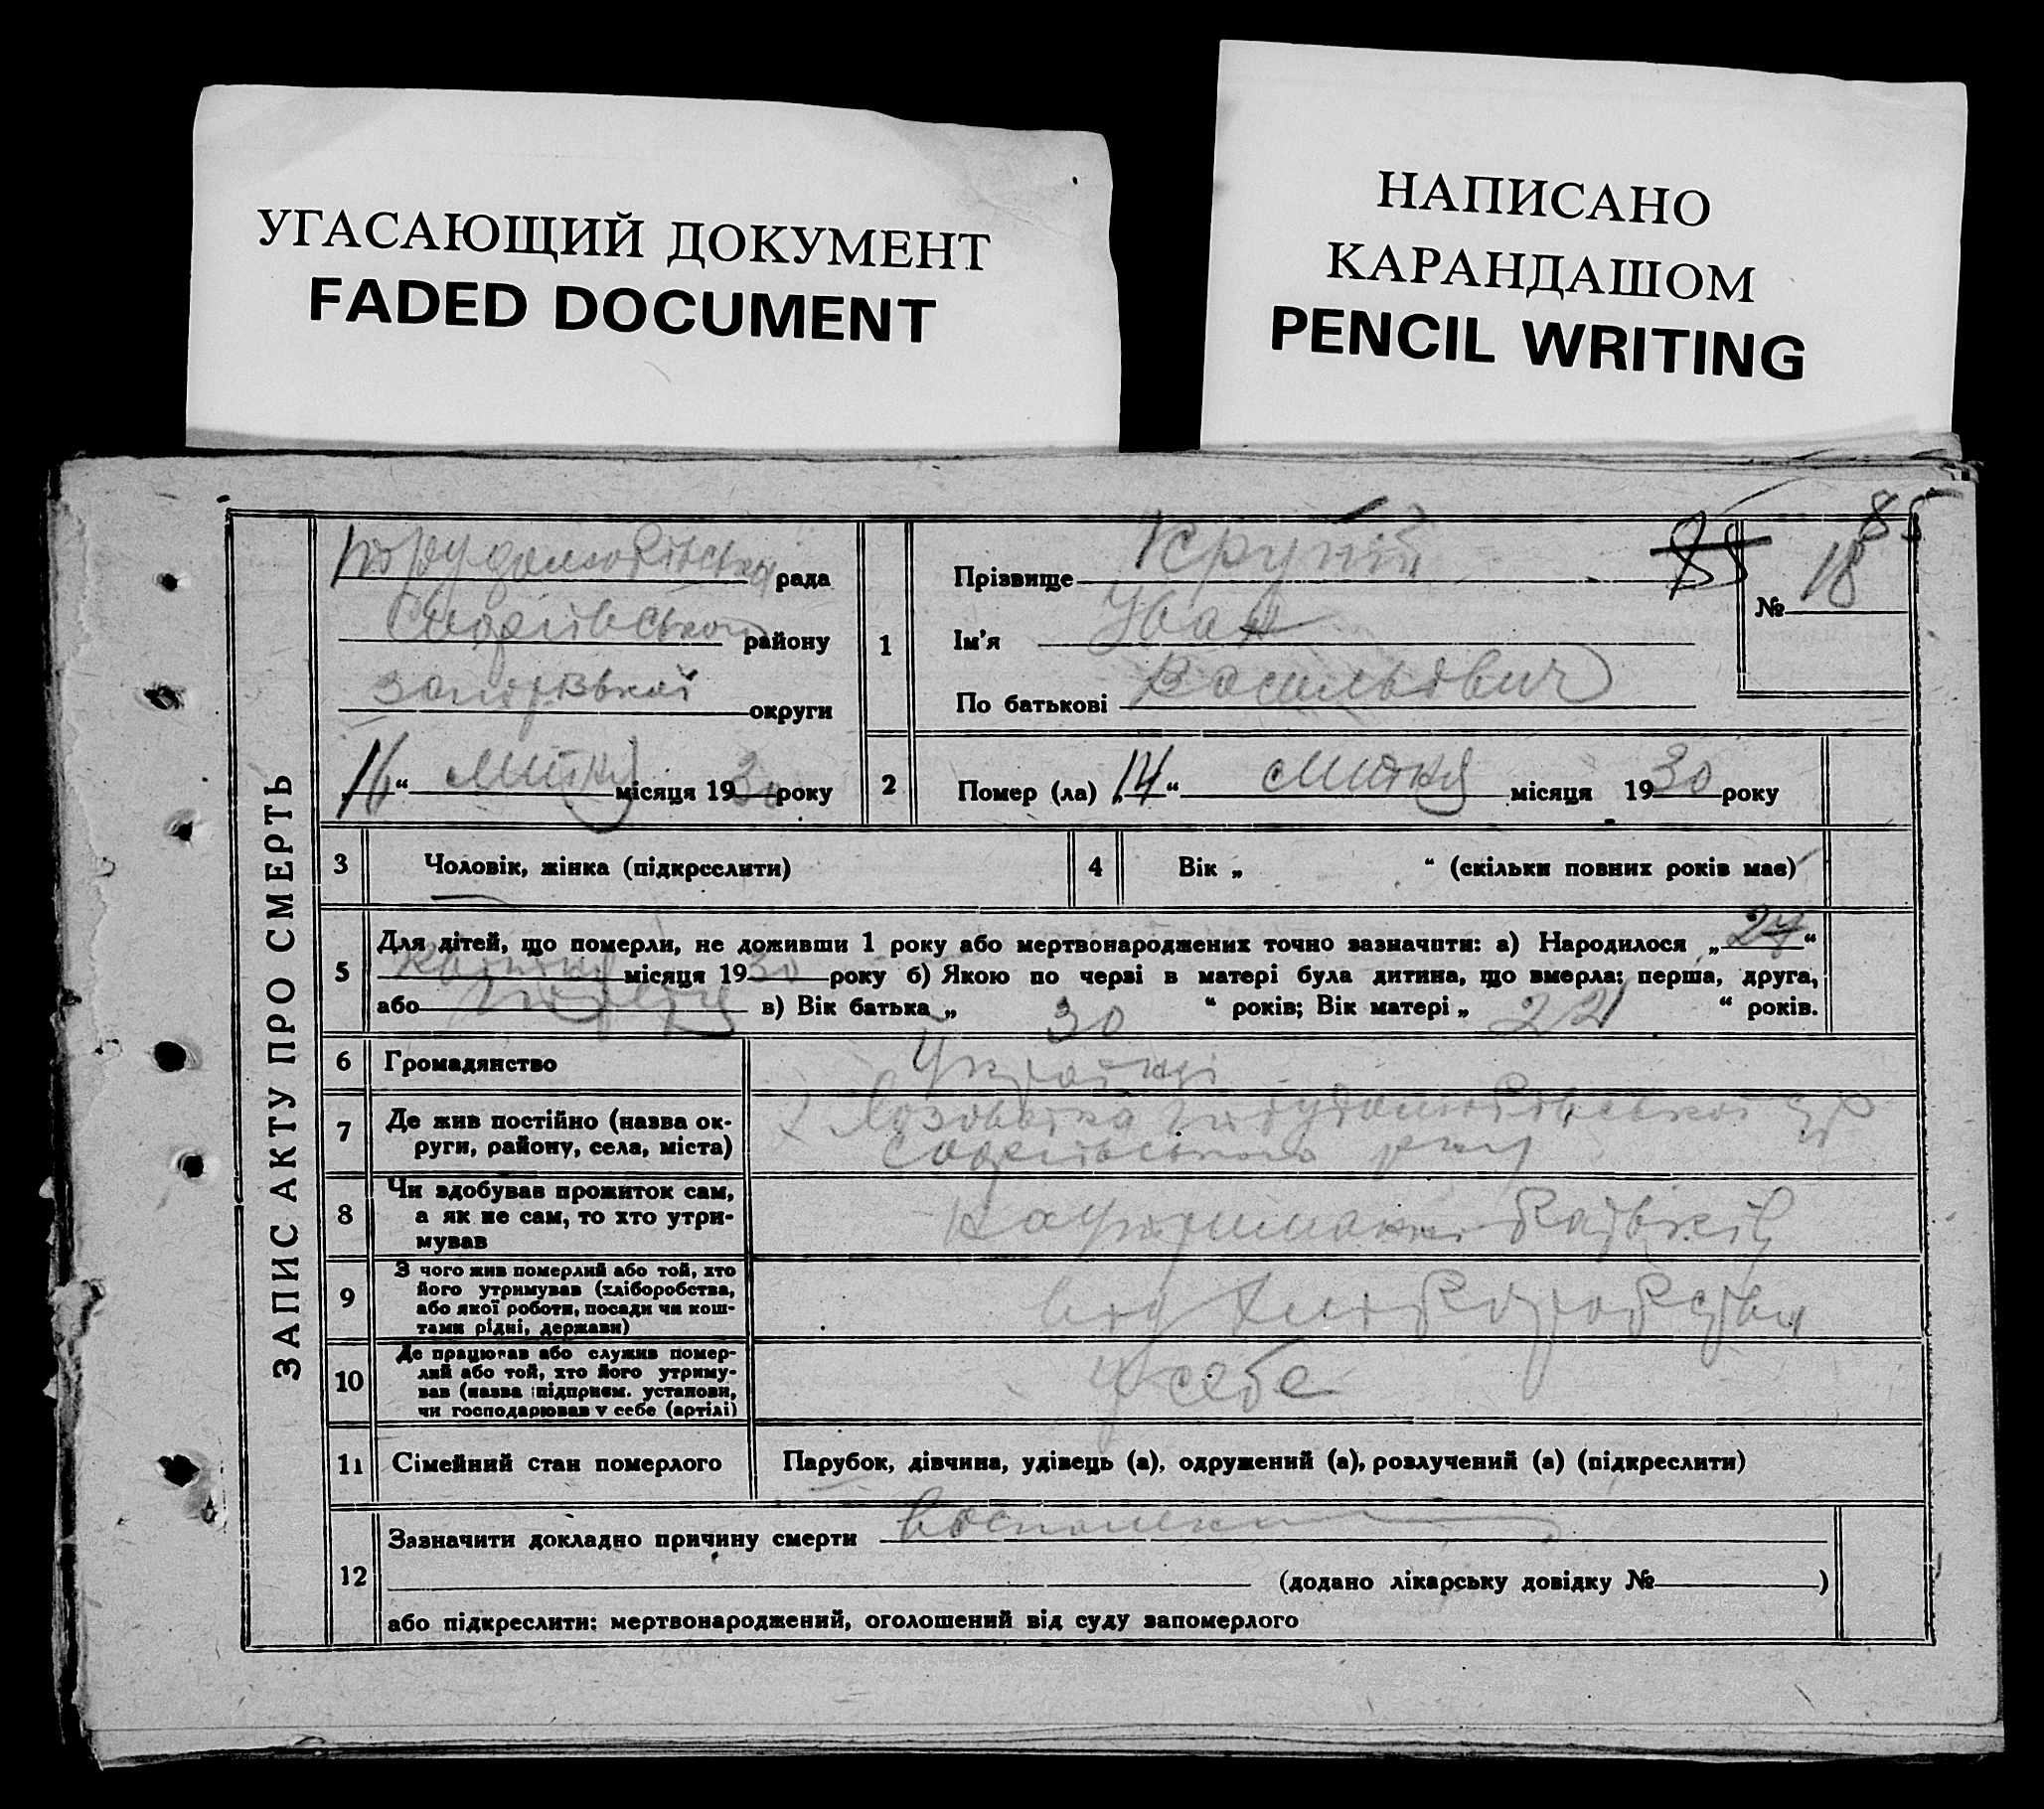 УГАСАЮЩИЙ ДОКУМЕНТ
FADED DOCUMENT
НАПИСАНО
КАРАНДАШОМ
PENCIL WRITING
85
ЗАПИС АКТУ ПРО СМЕРТЬ
рада
району
округи
16 “ місяця 1930 року
1
Прізвище Крупій
Ім'я Іван
По батькові Васильович
88
№ 18
2
Помер (ла) „14“ місяця 1930 року
3
Чоловік, жінка (підкреслити)
4
Вік „ “ (скільки повних років має)
5
Для дітей, що померли, не доживши 1 року або мертвонароджених точно зазначити: а) Народилося „24“
місяця 1930 року б) Якою по черзі в матері була дитина, що вмерла: перша, друга,
або в) Вік батька „ 30 “ років; Вік матері „ 22 “ років.
6
Громадянство
7
Де жив постійно (назва ок-
руги, району, села, міста)
8
Чи здобував прожиток сам,
а як не сам, то хто утри-
мував
9
З чого жив померлий або той, хто
його утримував (хліборобства,
або якої роботи, посади чи кош-
тами рідні, держави)
від хліборобства
10
Де працював або служив помер-
лий або той, хто його утриму-
вав (назва підприєм. установи,
чи господарював у себе (артілі)
У себе
11
Сімейний стан померлого
Парубок, дівчина, удівець (а), одружений (а), розлучений (а) (підкреслити)
12
Зазначити докладно причину смерти
(додано лікарську довідку № )
або підкреслити: мертвонароджений, оголошений від суду запомерлого